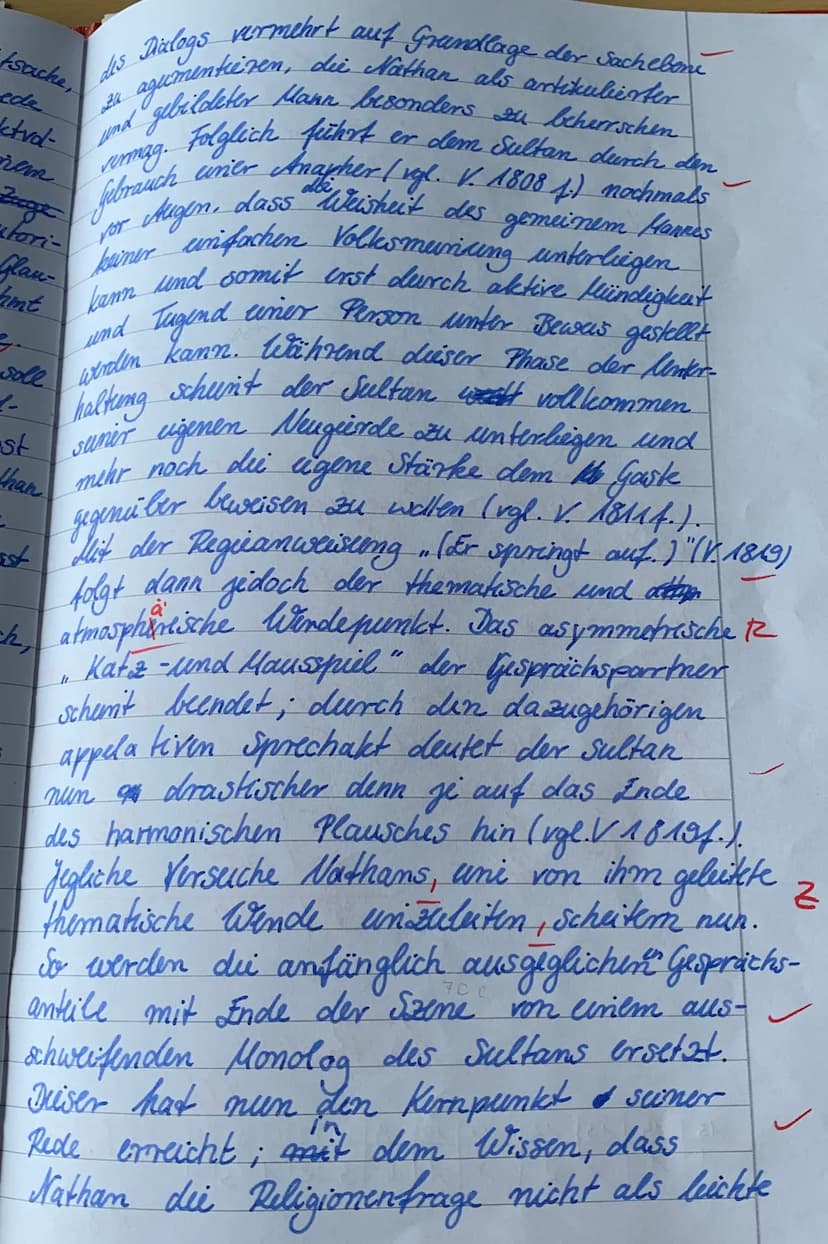 des Dialogs vermehrt auf Grundlage der Sachebene
zu agumentieren, die Nathan als artikulierter
und gebildeter Mann besonders zu beherrschen
vermag. Folglich führt er dem Sultan durch den
Gebrauch einer Anapher (vgl. V. 1808 f.) nochmals
vor Augen, dass die Weisheit des gemeinem Mannes
keiner einfachen Volksmeinung unterliegen
kann und somit erst durch aktive Mündigkeit
und Tugend einer Person unter Beweis gestellt
werden kann. Während dieser Phase der Unter-
haltung scheint der Sultan vollkommen
seiner eigenen Neugierde zu unterliegen und
mehr noch die eigene Stärke dem Gaste
gegenüber beweisen zu wollen (vgl. V. 1811f.).
Mit der Regieanweisung „(Er springt auf.)" (V. 1819)
folgt dann jedoch der thematische und
atmosphärische Wendepunkt. Das asymmetrische R
„Katz-und Mausspiel" der Gesprächspartner
scheint beendet; durch den dazugehörigen
appelativen Sprechakt deutet der Sultan
nun drastischer denn je auf das Ende
des harmonischen Plausches hin (vgl. V 1819f.).
Jegliche Versuche Nathans, eine von ihm geleitete Z
thematische Wende einzuleiten, scheitern nun.
So werden die anfänglich ausgeglichenen Gesprächs-
anteile mit Ende der Szene von einem aus-
schweifenden Monolog des Sultans ersetzt.
Dieser hat nun den Kernpunkt seiner
Rede erreicht; in dem Wissen, dass
Nathan die Religionenfrage nicht als leichte
tsache,
ede
nem
Glau-
hmt
soll
than